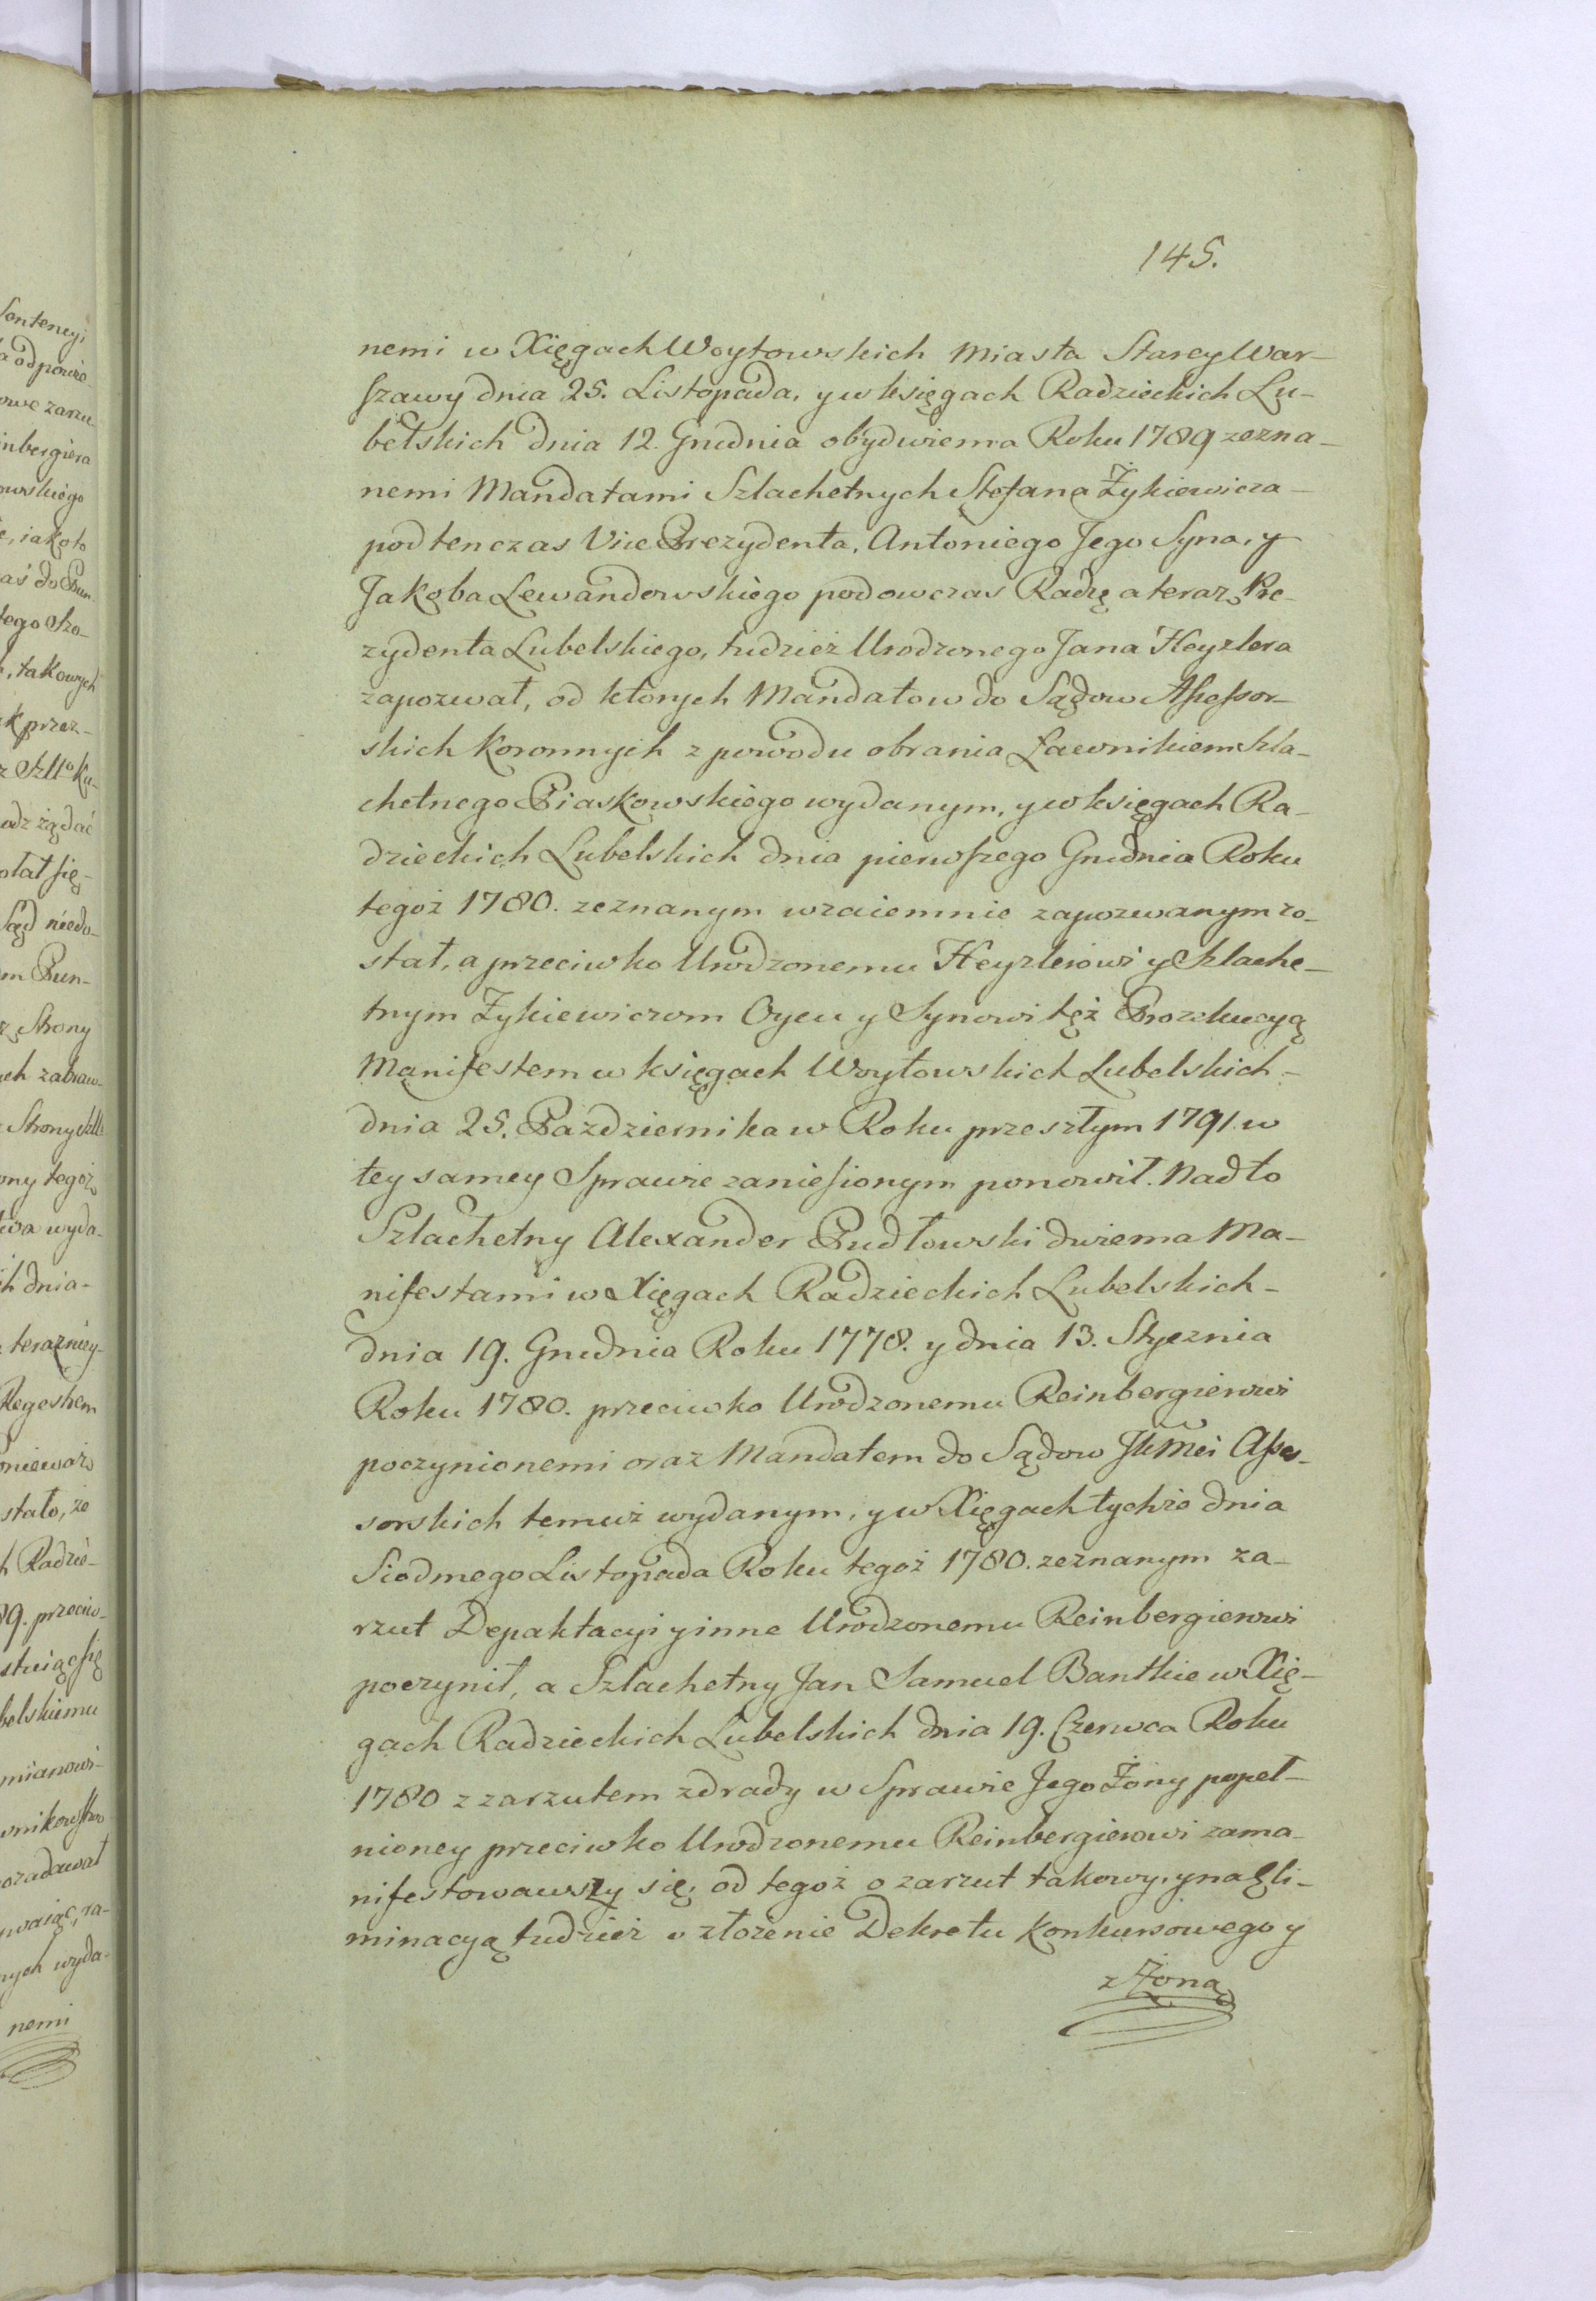 145.
nemi w Xięgach Woytowskich Miasta Starey War-
szawy dnia 25. Listopada, y w księgach Radzieckich Lu-
belskich dnia 12. Grudnia obydwiema Roku 1789 zezna-
nemi Mandatami Szlachetnych Stefana Żykiewicza-
podtenczas Vice Prezydenta, Antoniego Jego Syna, y
Jakoba Lewandowskiego podowczas Radzę a teraz Pre-
zydenta Lubelskiego, tudzież Urodzonego Jana Heyzlera
zapozwał, od których Mandatow do Sądow Assessor-
skich Koronnych z powodu obrania Ławnikiem Szla-
chetnego Piaskowskiego wydanym, y w księgach Ra-
dzieckich Lubelskich dnia pierwszego Grudnia Roku
tegoż 1780. zeznanym wzaiemnie zapozwanym zo-
stał, a przeciwko Urodzonemu Heyzlerowi y Szlache-
tnym Żykiewiczom Oycu y Synowi też Prozekucyą
Manifestem w księgach Woytowskich Lubelskich-
dnia 25. Pazdziernika w Roku przeszłym 1791. w
tey samey Sprawie zaniesionym ponowił. Nadto
Szlachetny Alexander Pudłowski dwiema Ma-
nifestami w Xięgach Radzieckich Lubelskich-
dnia 19. Grudnia Roku 1778. y dnia 13. Stycznia
Roku 1780. przeciwko Urodzonemu Reinbergierowi
poczynionemi oraz Mandatem do Sądow JKMci Asses-
sorskich temuż wydanym, y w Xięgach tychże dnia
Siodmego Listopada Roku tegoż 1780. zeznanym za-
rzut Depaktacyi y inne Urodzonemu Reinbergierowi
poczynił, a Szlachetny Jan Samuel Bantkie w Xię-
gach Radzieckich Lubelskich dnia 19. Czerwca Roku
1780 z zarzutem zdrady w Sprawie Jego Żony popeł-
nioney przeciwko Urodzonemu Reinbergierowi zama-
nifestowawszy się, od tegoż o zarzut takowy, y na Eli-
minacyą tudzież o złożenie Dekretu Konkursowego y
z Żoną